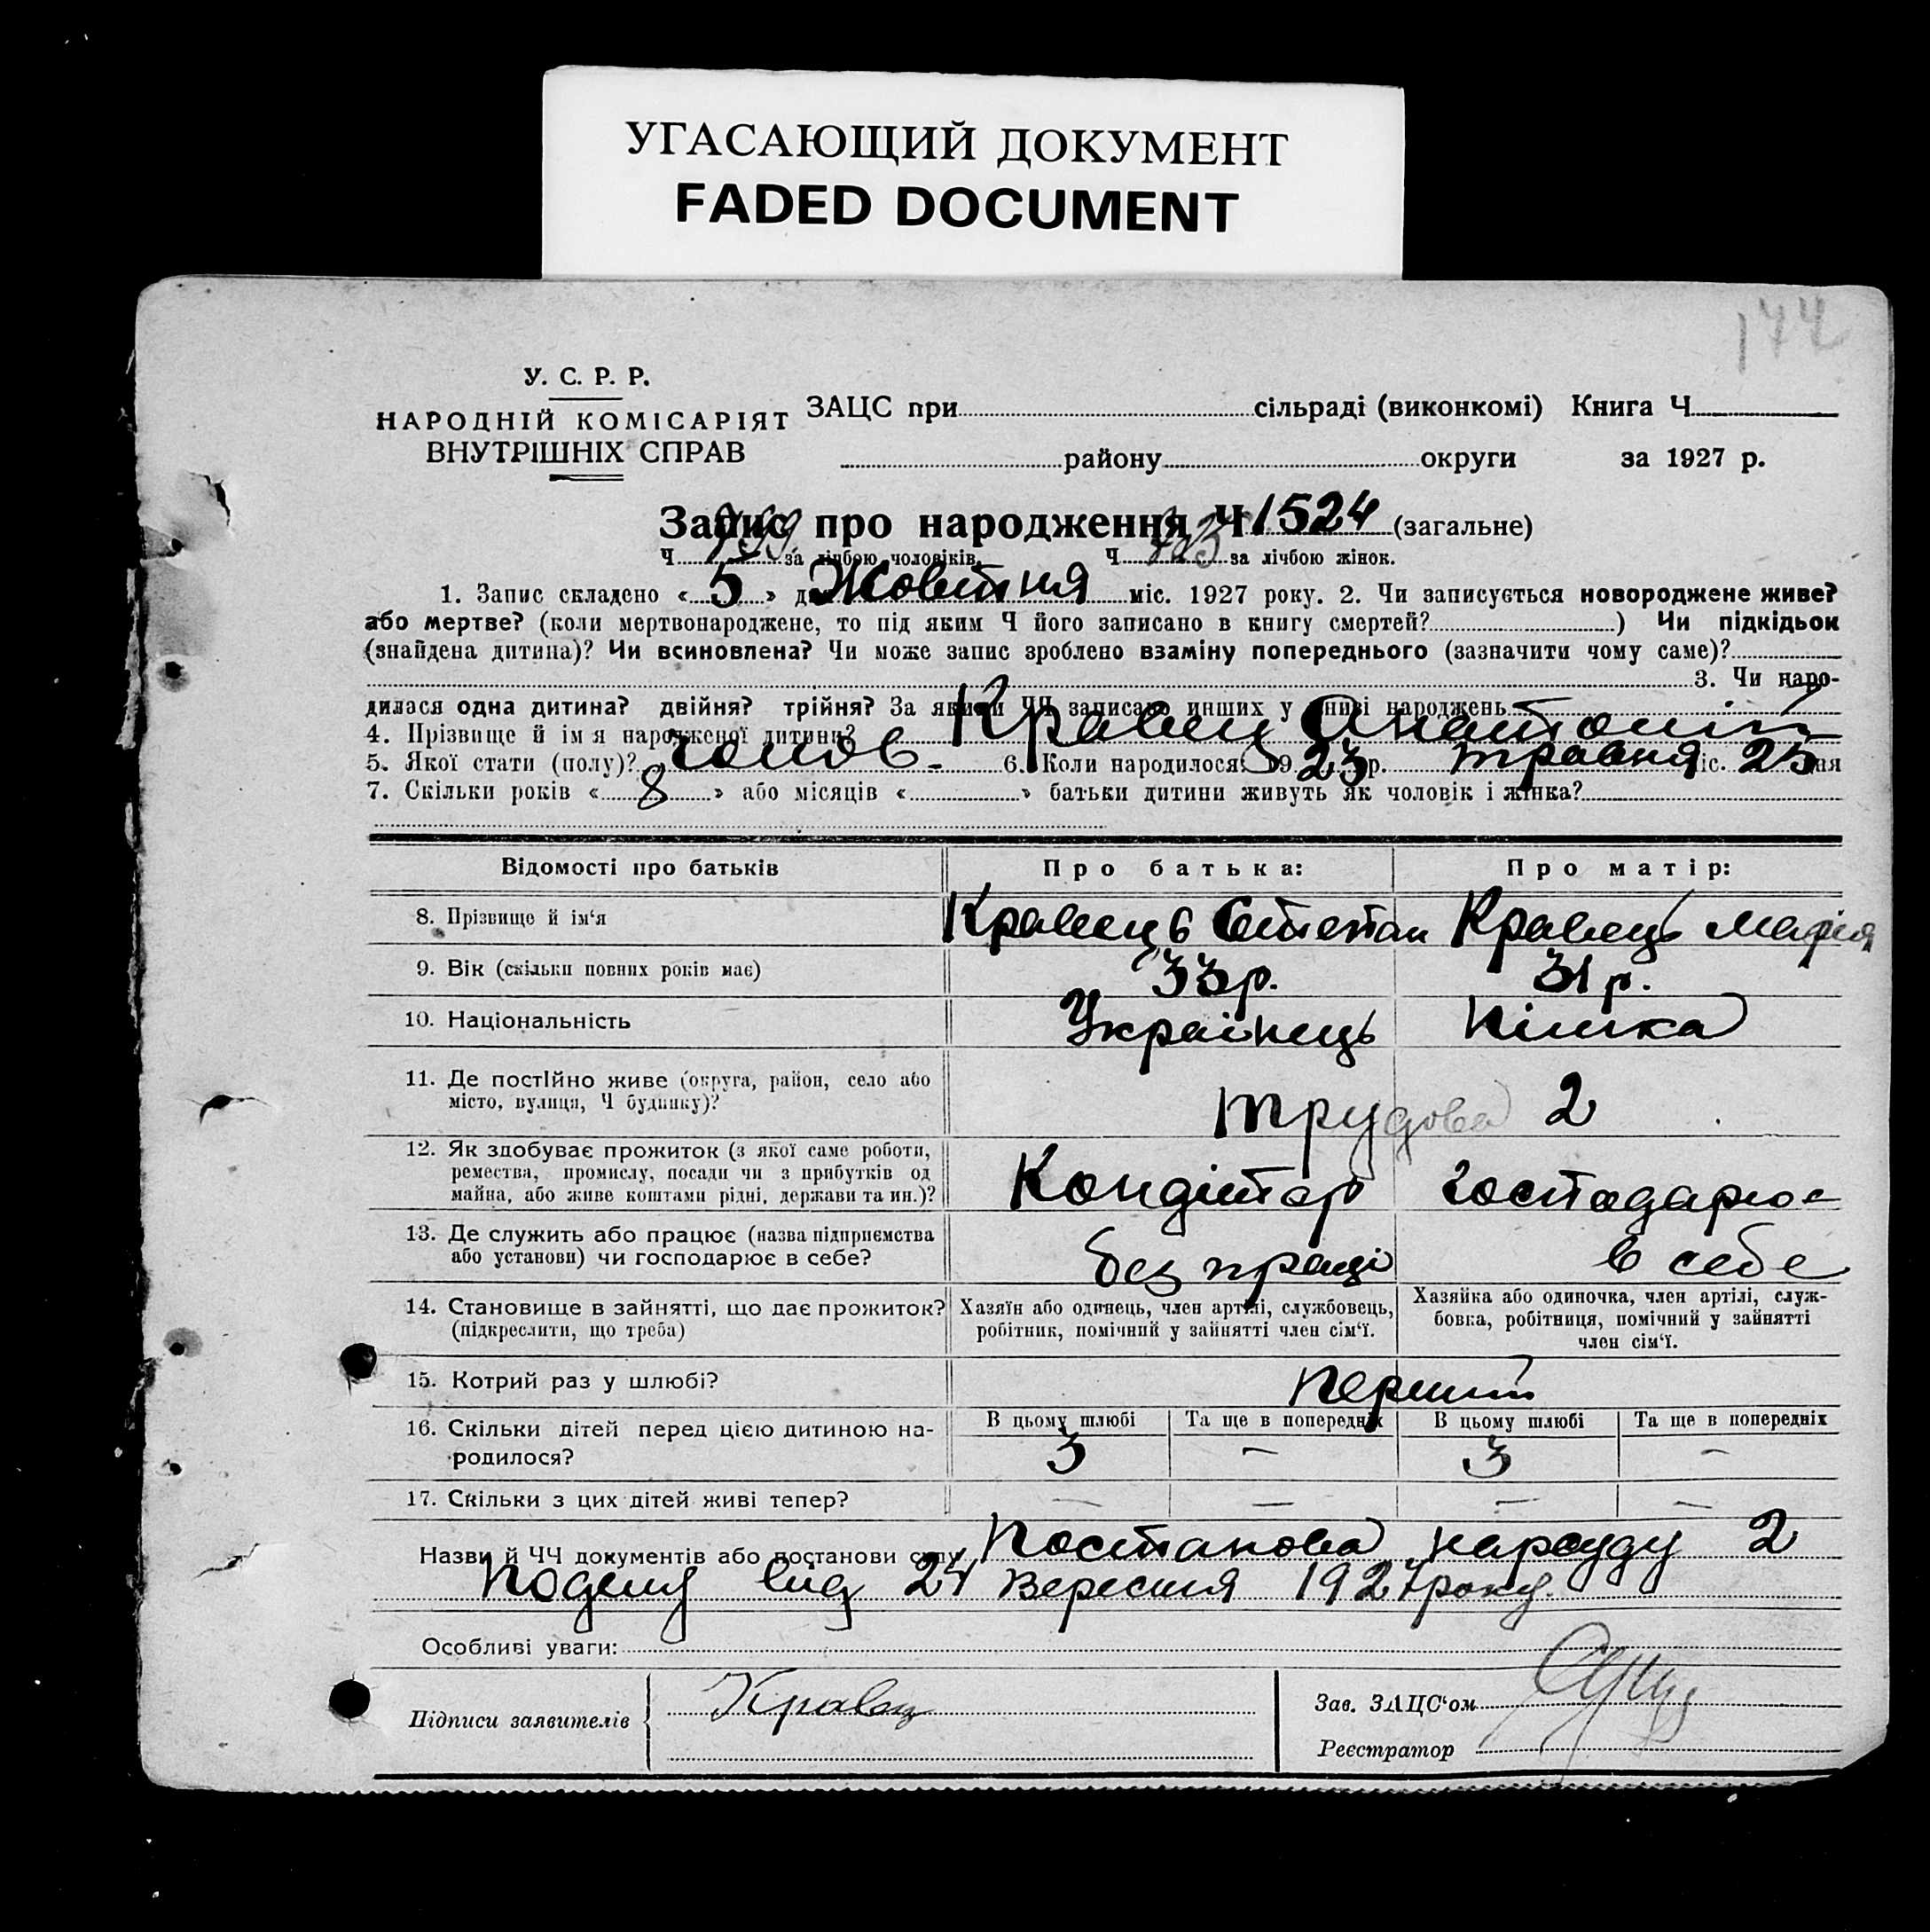 УГАСАЮЩИЙ ДОКУМЕНТ
FADED DOCUMENT
У. С. Р. Р.
НАРОДНІЙ КОМІСАРІЯТ
ВНУТРІШНІХ СПРАВ
ЗАЦС при сільраді (виконкомі) Книга Ч
району округи за 1927 р.
Запис про народження Ч 1524 (загальне)
Ч за лічбою чоловіків. Ч за лічбою жінок.
1. Запис складено « 5 » дня Жовтня міс. 1927 року. 2. Чи записується новороджене живе?
або мертве? (коли мертвонароджене, то під яким Ч його записано в книгу смертей? ) Чи підкідьок
(знайдена дитина)? Чи всиновлена? Чи може запис зроблено взаміну попереднього (зазначити чому саме)?
3. Чи наро-
дилася одна дитина? двійня? трійня? За якими ЧЧ записано инших у книзі народжень
4. Прізвище й ім я народженої дитини? Кравец Анатолій
5. Якої стати (полу)? чолов. 6. Коли народилося: 1923 р. травня міс. 25 дня
7. Скільки років « 8 » або місяців « » батьки дитини живуть як чоловік і жінка?
Відомості про батьків Про батька: Про матір:
8. Прізвище й ім‘я Кравець Степан Кравець Марія
9. Вік (скільки повних років має) 33 р. 31 р.
10. Національність Українець Німка
11. Де постійно живе (округа, район, село або
місто, вулиця, Ч будинку)? Трудова 2
12. Як здобуває прожиток (з якої саме роботи,
ремества, промислу, посади чи з прибутків од
майна, або живе коштами рідні, держави та ин.)? Кондітор господарює
13. Де служить або працює (назва підприємства
або установи) чи господарює в себе? без праці в себе
14. Становище в зайнятті, що дає прожиток?
(підкреслити, що треба)
Хазяїн або одинець, член артілі, службовець,
робітник, помічний у зайнятті член сім‘ї.
Хазяйка або одиночка, член артілі, служ-
бовка, робітниця, помічний у зайнятті
член сім‘ї.
15. Котрий раз у шлюбі? перший
16. Скільки дітей перед цією дитиною на-
родилося?
В цьому шлюбі Та ще в попередніх В цьому шлюбі Та ще в попередніх
3 — 3 —
17. Скільки з цих дітей живі тепер? — — — —
Назви й ЧЧ документів або постанови суду Постанова нарсуду 2
від 24 Вересня 1927 року.
Особливі уваги:
Підписи заявителів Кравец
Зав. ЗАЦС‘ом
Реєстратор